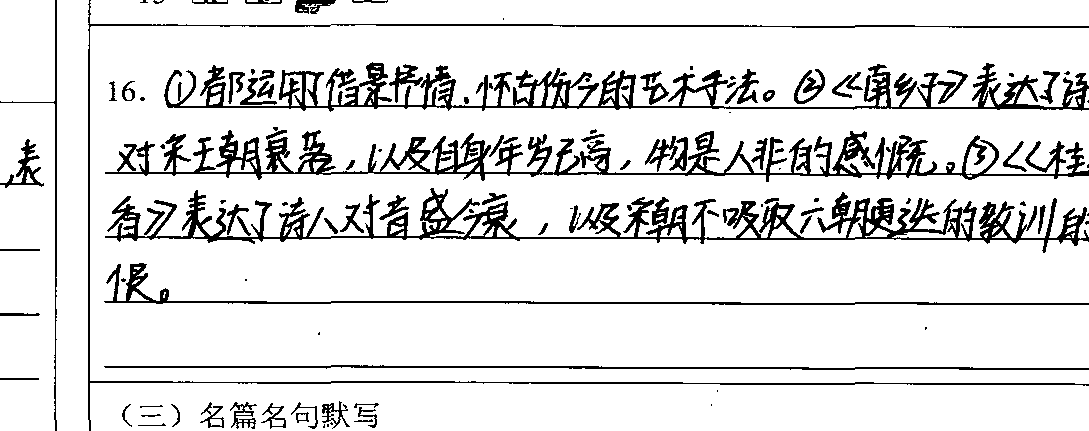 16. ①都运用了借景抒情、怀古伤今的艺术手法。②《南乡子》表达了诗
对宋王朝衰落，以及自身年岁已高，物是人非的感慨。③《桂
表
香》表达了诗人对昔盛今衰，以及宋朝不吸取六朝更迭的教训的
恨。
（三）名篇名句默写